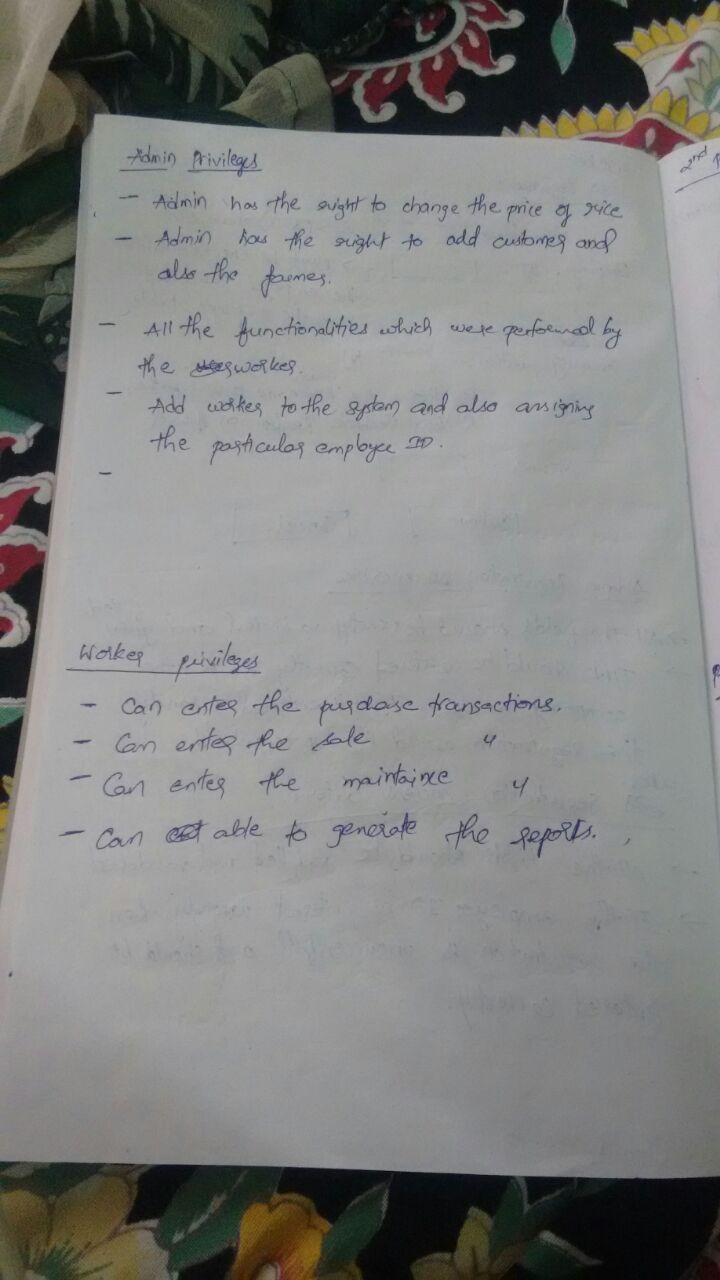 Admin Privileges
- Admin has the right to change the price of rice
- Admin has the right to add customer and
also the farmer.
- All the functionalities which were performed by
the worker.
- Add worker to the system and also assigning
the particular employee ID.
-
Worker privileges
- Can enter the purchase transactions.
- Can enter the sale 〃
- Can enter the maintaince 〃
- Can able to generate the reports.
2nd